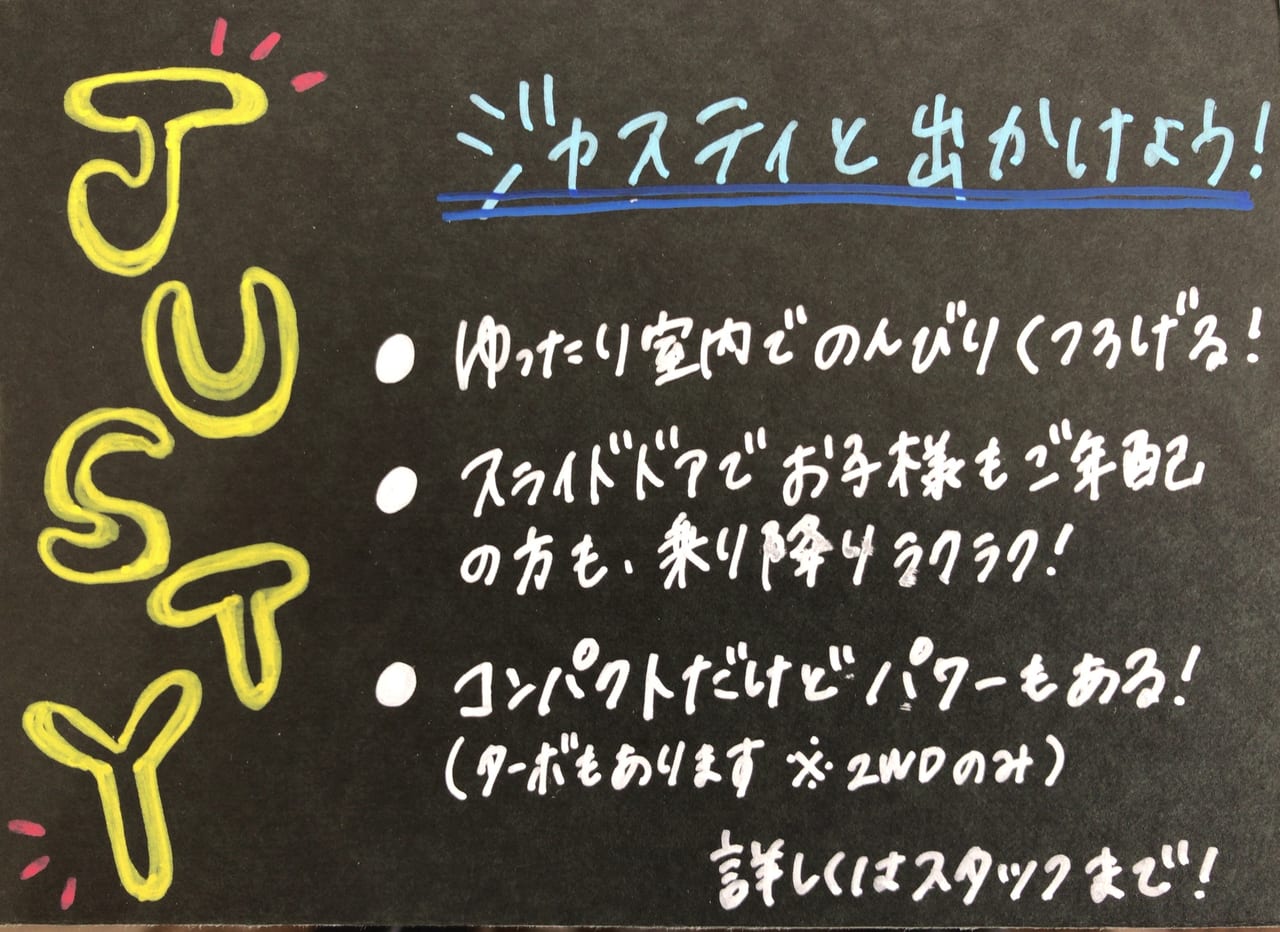 JUSTY
ジャスティと出かけよう!
● ゆったり室内でのんびりくつろげる!
● スライドドアでお子様もご年配
の方も、乗り降りラクラク!
● コンパクトだけどパワーもある!
(ターボもあります ※2WDのみ)
詳しくはスタッフまで!